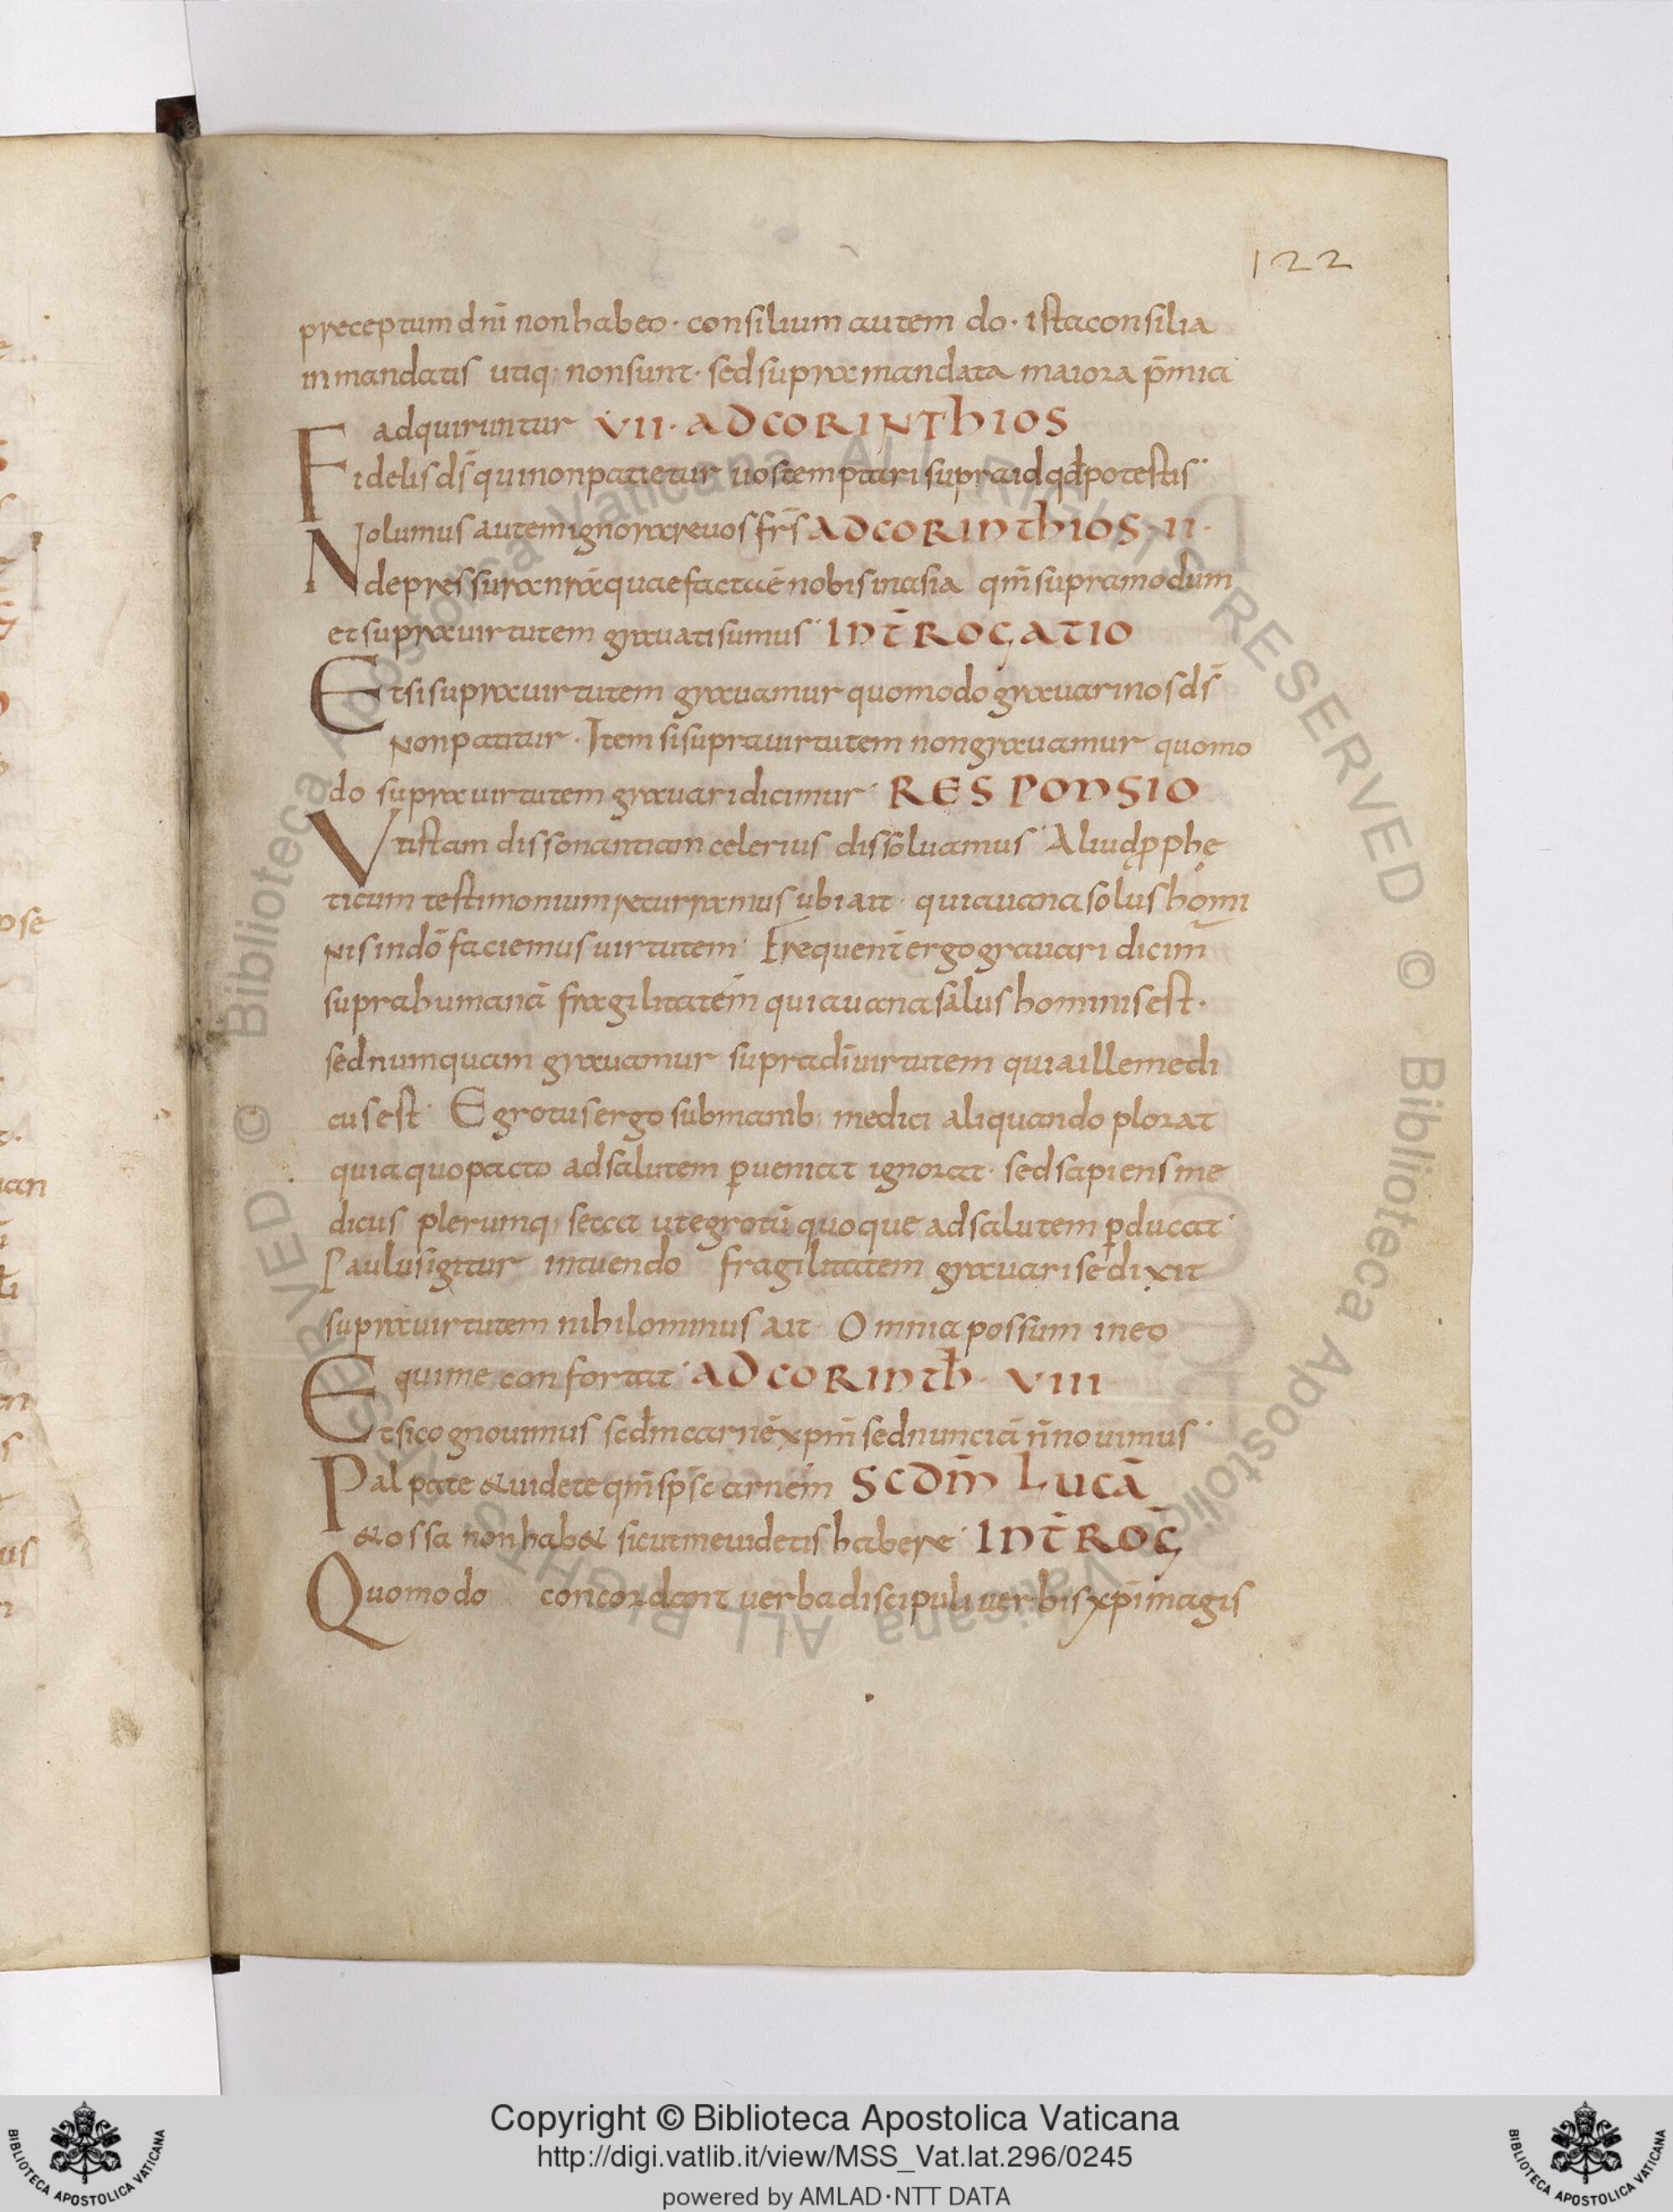 122
preceptum dnī non habeo · consilium autem do · ista consilia
in mandatis utiq; non sunt · sed supra mandata maiora p̄mia
adquiruntur VII · AD CORINTHIOS
Fidelis ds̄ qui non patietur vos temptari supra id qd̄ potestis
Nolumus autem ignorare vos fr̄s AD CORINTHIOS · II ·
de pressura nr̄a quae facta ē nobis in asia qm̄ supra modum
et supra virtutem gravati sumus INT̄ROGATIO
Et si supra virtutem gravamur quomodo gravari nos ds̄
non patitur · Item si supra virtutem non gravamur quomo
do supra virtutem gravari dicimur RESPONSIO
Ut istam dissonantiam celerius dissolvamus Aliud ꝓphę
ticum testimonium recurramus ubi ait · quia vana solus homi
nis in dō faciemus virtutem · Frequent̄ ergo gravari dicim̄
supra humanā fragilitatem quia vana salus hominis est ·
sed numquam gravamur supra dī virtutem quia ille medi
cus est · Egrotus ergo sub manib; medici aliquando plorat
quia quo pacto ad salutem ꝑveniat ignorat · sed sapiens me
dicus plerumq; secat ut egrotū quoque ad salutem ꝑducat
Paulus igitur intuendo fragilitatem gravari se dixit
supra virtutem nihilominus ait · Omnia possum in eo
qui me confortat AD CORINTH̄ · VIII
Et si cognovimus scd̄m carnē xpm̄ sed nunc iā n̄ novimus
Palpate & videte qm̄ sps̄ carnem SCDM̄ LUCĀ
& ossa non hab& sicut me videtis habere INT̄ROḠ
Quomodo concordant verba discipuli verbis xpī magis
Copyright © Biblioteca Apostolica Vaticana
http://digi.vatlib.it/view/MSS_Vat.lat.296/0245
powered by AMLAD·NTT DATA
BIBLIOTECA APOSTOLICA VATICANA
BIBLIOTECA APOSTOLICA VATICANA
© Biblioteca Apostolica Vaticana ALL RIGHTS RESERVED © Biblioteca Apostolica Vaticana ALL RIGHTS RESERVED